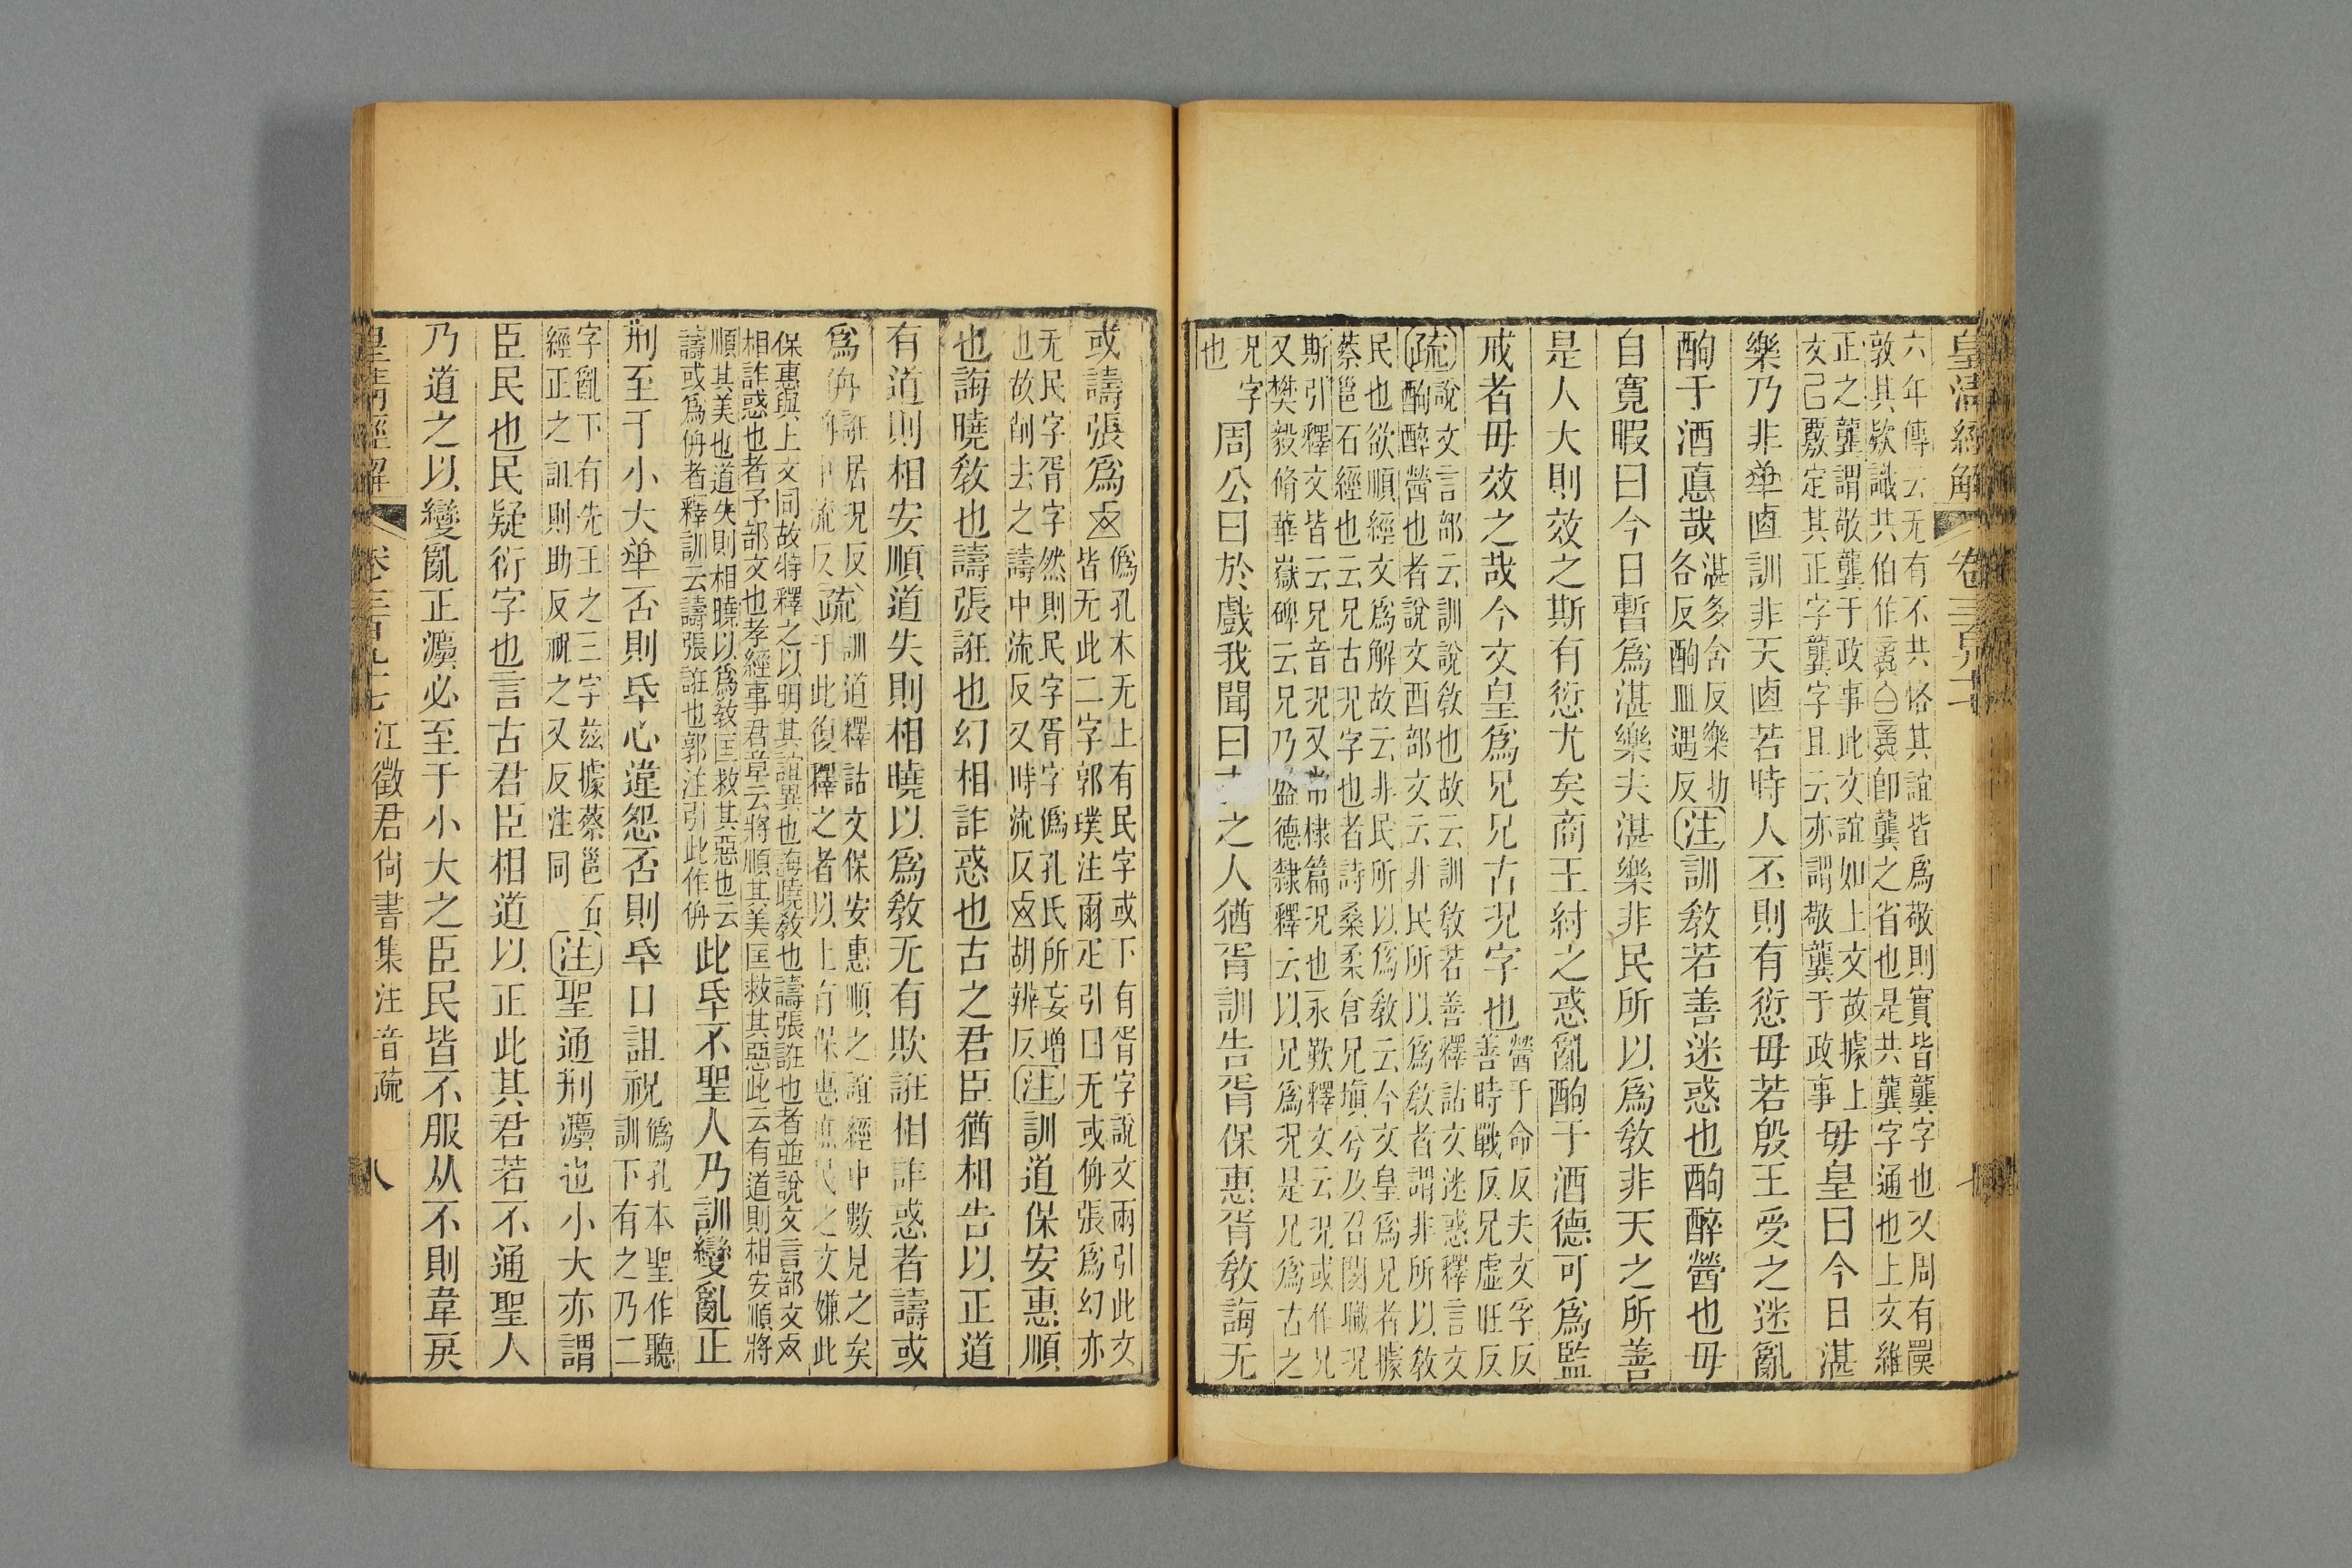 皇清經解 卷三百九十七
六年傳云无有不共恪其誼皆爲敬則實皆龔字也又周有㒺
敦其欵識共伯作龔白龔卽龔之省也是共龔字通也上文維
正之龔謂敬龔于政事此文誼如上文故據上
文已覈定其正字龔字且云亦謂敬龔于政事毋皇曰今日湛
樂乃非單卣訓非天卣若時人丕則有愆毋若殷王受之迷亂
酗于酒悳哉湛多舍反樂勑
各反酗皿遇反注訓敎若善迷惑也酗醉醟也毋
自寬暇曰今日暫爲湛樂夫湛樂非民所以爲敎非天之所善
是人大則效之斯有愆尤矣商王紂之惑亂酗于酒德可爲監
戒者毋效之哉今文皇爲兄兄古況字也醟于命反夫文孚反
善時戰反兄虛旺反
疏說文言部云訓說敎也故云訓敎若善釋詁文迷惑釋言文
酗醉醟也者說文酉部文云非民所以爲敎者謂非所以敎
民也欲順經文爲解故云非民所以爲敎云今文皇爲兄者據
蔡邕石經也云兄古況字也者詩桑柔倉兄塡兮及召閔職兄
斯引釋文皆云兄音況又常棣篇況也永歎釋文云況或作兄
又樊毅脩華嶽碑云兄乃盈德隸釋云以兄爲況是兄爲古之
況字
也周公曰於戲我聞曰之人猶胥訓告胥保惠胥敎誨无
或譸張爲幻僞孔本无上有民字或下有胥字說文兩引此文
皆无此二字郭璞注爾疋引曰无或侜張爲幻亦
无民字胥字然則民字胥字僞孔氏所妄增
也故削去之譸中流反又時流反幻胡辨反注訓道保安惠順
也誨曉敎也譸張誑也幻相詐惑也古之君臣猶相告以正道
有道則相安順道失則相曉以爲敎无有欺誑相詐惑者譸或
爲侜誑居況反侜中流反疏訓道釋詁文保安惠順之誼經中數見之矣
于此復釋之者以上有保惠庶民之文嫌此
保惠與上文同故特釋之以明其誼異也誨曉敎也譸張誑也者並說文言部文幻
相詐惑也者予部文也孝經事君章云將順其美匡救其惡此云有道則相安順將
順其美也道失則相曉以爲敎匡救其惡也云
譸或爲侜者釋訓云譸張誑也郭注引此作侜此氒不聖人乃訓變亂正
刑至于小大單否則氒心違怨否則氒口詛祝僞孔本聖作聽
訓下有之乃二
字亂下有先王之三字茲據蔡邕石
經正之詛則助反祝之又反注同注聖通刑灋也小大亦謂
臣民也民疑衍字也言古君臣相道以正此其君若不通聖人
乃道之以變亂正灋必至于小大之臣民皆不服从不則韋戾
皇清經解 卷三百九十七 江徵君尙書集注音疏 八